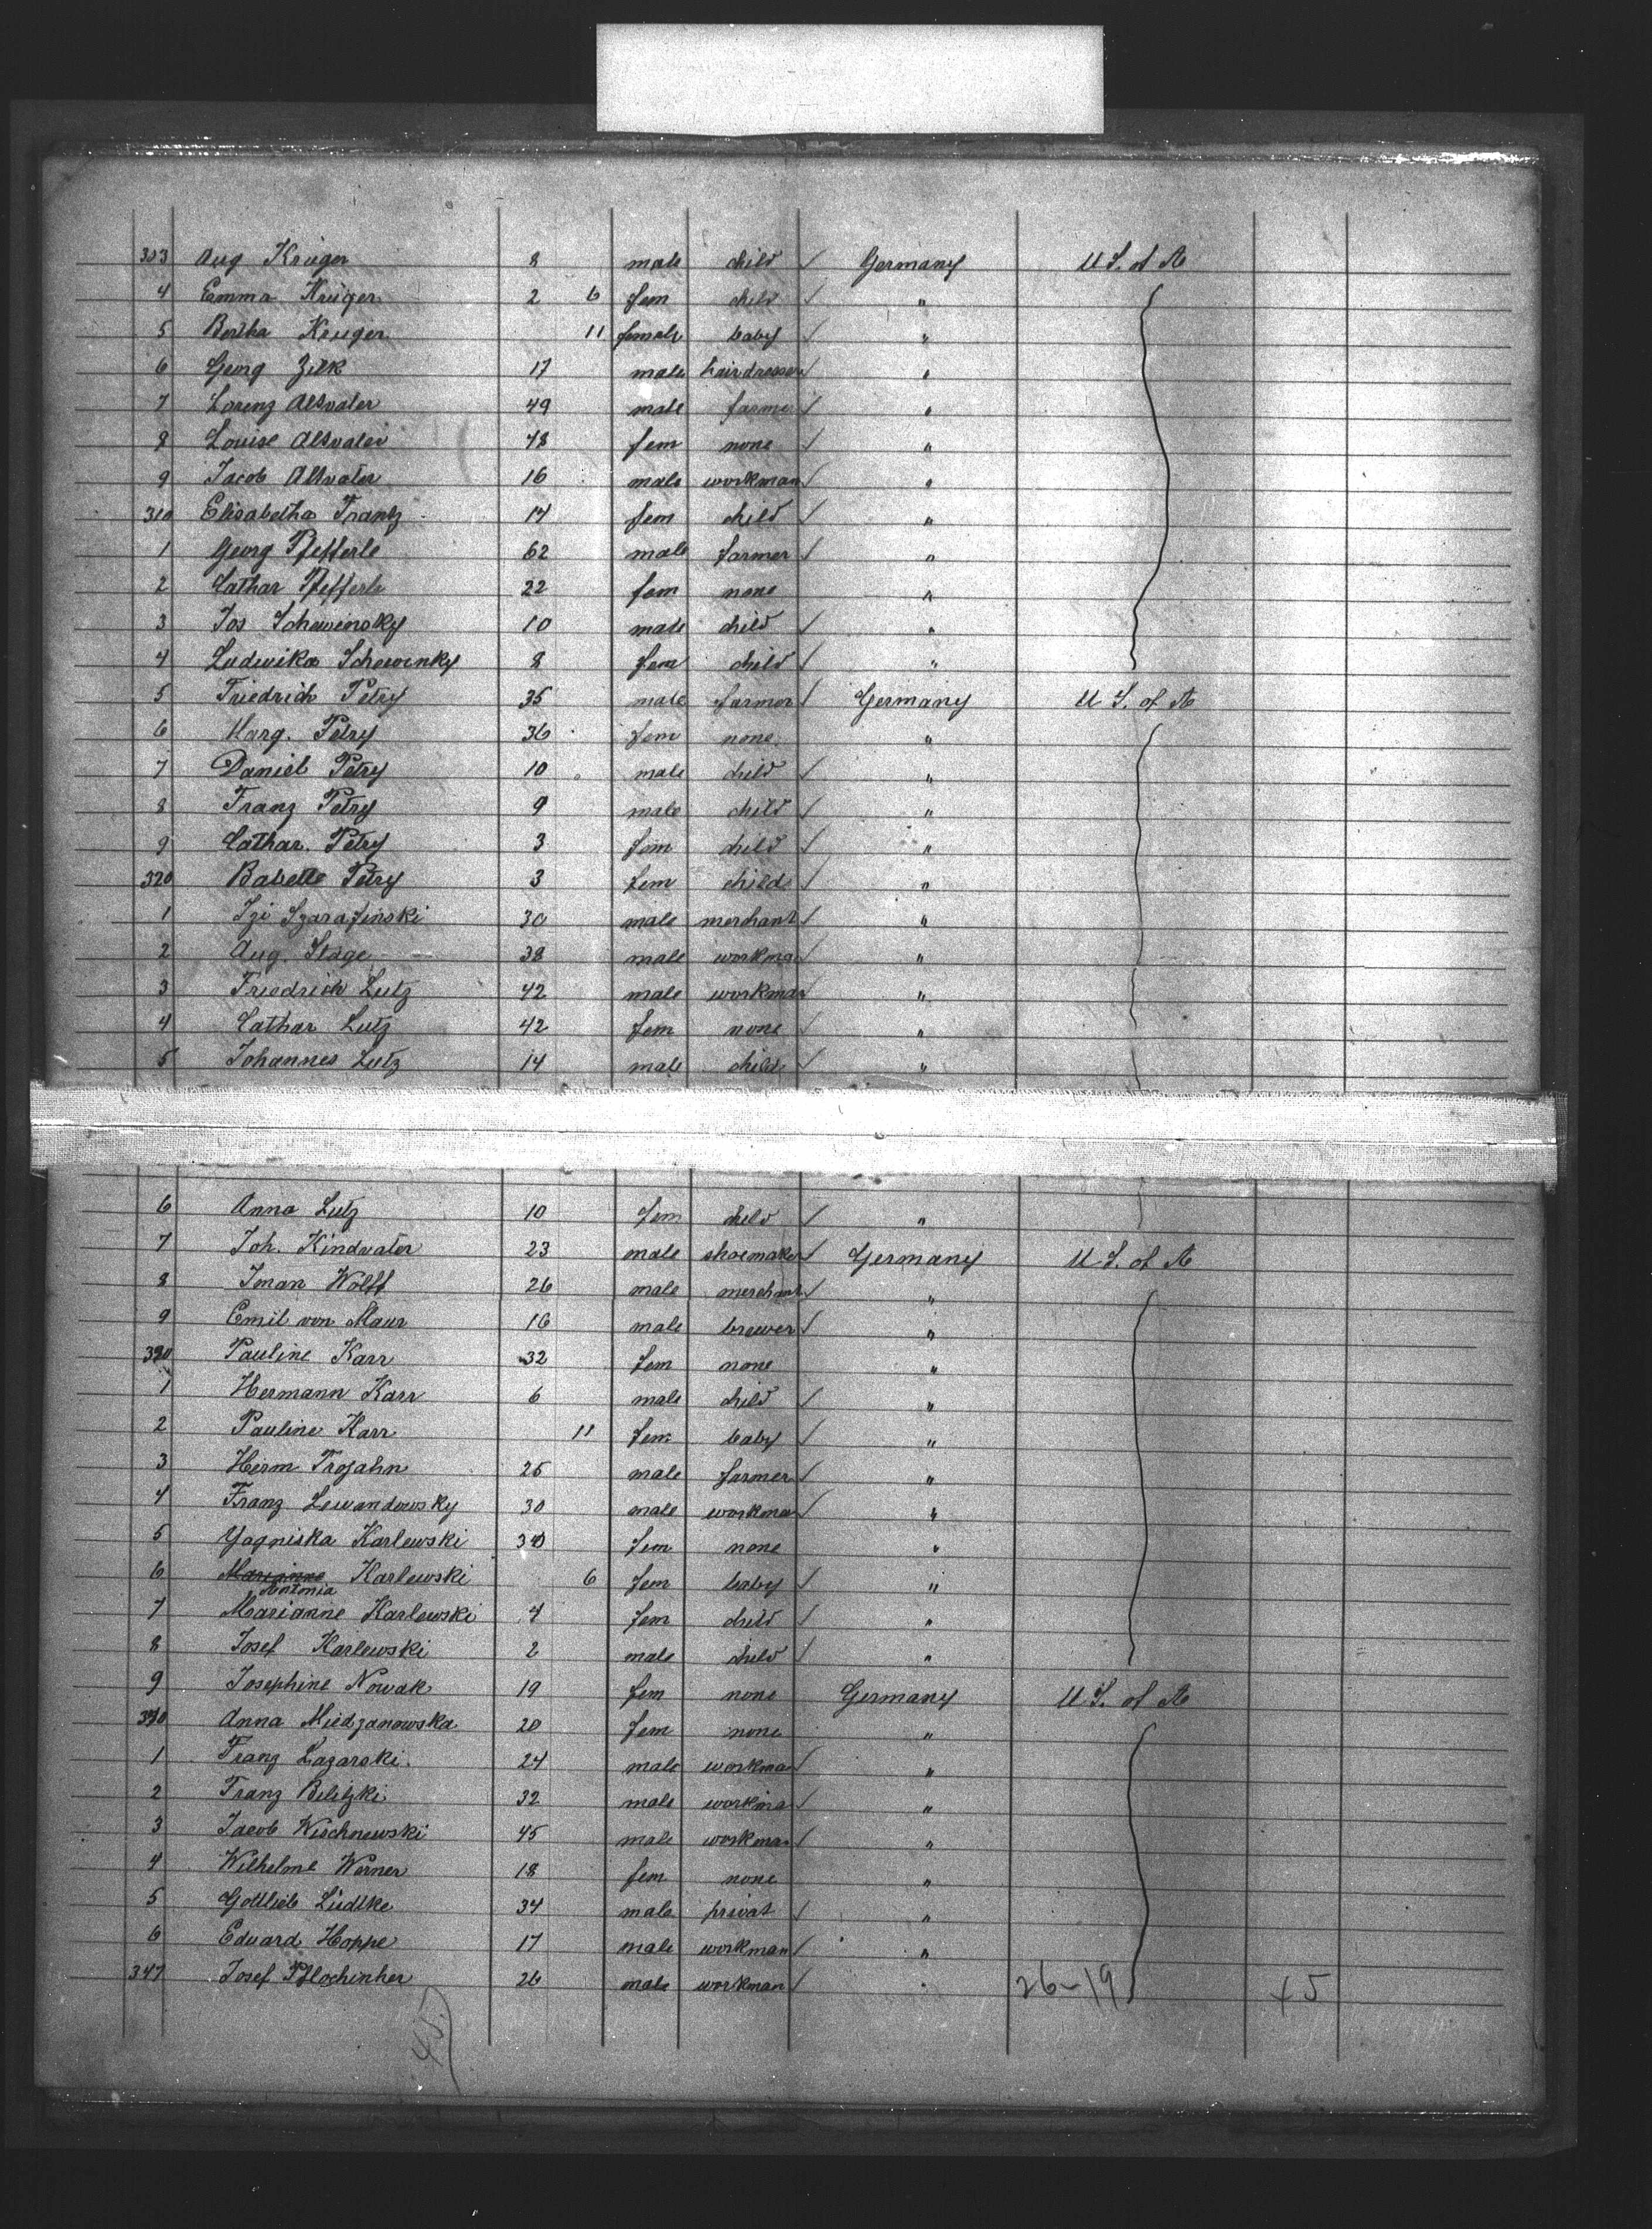 303 Aug Krüger 8 male child / Germany U S. of A
4 Emma Krüger 2 6 fem child / "
5 Bertha Krüger 11 female baby / "
6 Georg Zilk 17 male hairdresser / "
7 Lorenz Altvater 49 male farmer / "
8 Louise Altvater 48 fem none / "
9 Jacob Altvater 16 male workman / "
310 Elisabetha Frantz 14 fem child / "
1 Georg Pfefferle 62 male farmer / "
2 Cathar Pfefferle 22 fem none "
3 Jos Schewinsky 10 male child / "
4 Ludwika Schewinky 8 fem child / "
5 Friedrich Petry 35 male farmer / Germany U S. of A
6 Marg. Petry 36 fem none "
7 Daniel Petry 10 male child / "
8 Franz Petry 9 male child / "
9 Cathar. Petry 3 fem child / "
320 Babette Petry 3 fem child "
1 Izi Szarafinski 30 male merchant / "
2 Aug. Stage 38 male workma / "
3 Friedrich Lutz 42 male workman "
4 Cathar Lutz 42 fem none / "
5 Johannes Lutz 14 male child / "
6 Anna Lutz 10 fem child / "
7 Joh. Kindvater 23 male shoemaker / Germany U S. of A
8 Iman Wolff 26 male merchant / "
9 Emil von Maur 16 male brewer / "
330 Pauline Karr 32 fem none "
1 Hermann Karr 6 male child / "
2 Pauline Karr 11 fem baby / "
3 Herm Trojahn 25 male farmer / "
4 Franz Lewandowsky 30 male workma / "
5 Yagniska Karlewski 30 fem none "
6 Marianne Karlewski 6 fem baby / "
Antonia
7 Marianne Karlewski 4 fem child / "
8 Josef Karlewski 2 male child / "
9 Josephine Nowak 19 fem none Germany U S. of A
340 Anna Miedzanowska 20 fem none "
1 Franz Lazarski 24 male workman "
2 Franz Bilitzki 32 male workma / "
3 Jacob Wischnewski 45 male workman / "
4 Wilhelme Werner 18 fem none "
5 Gottlieb Lüdtke 34 male privat / "
6 Eduard Hoppe 17 male workman / "
347 Josef 26 male workman / " 26-19 45
45